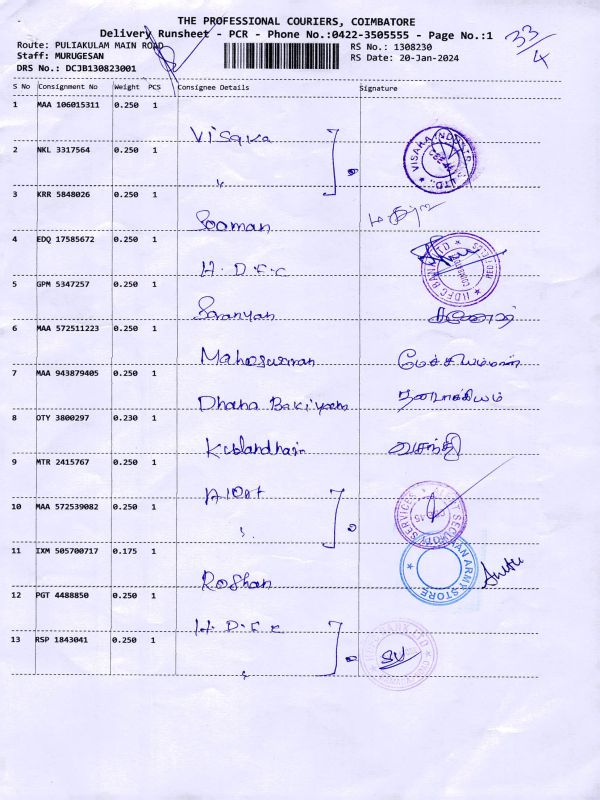 THE PROFESSIONAL COURIERS, COIMBATORE
Delivery Runsheet - PCR - Phone No.:0422-3505555 - Page No.:1
33/4
Route: PULIAKULAM MAIN ROAD RS No.: 1308230
Staff: MURUGESAN RS Date: 20-Jan-2024
DRS No.: DCJB130823001
S No Consignment No Weight PCS Consignee Details Signature
1 MAA 106015311 0.250 1
Visaka
2 NKL 3317564 0.250 1
"
3 KRR 5848026 0.250 1
4 EDQ 17585672 0.250 1
H.D.F.C
HDFC BANK LTD
5 GPM 5347257 0.250 1
Saranyan
6 MAA 572511223 0.250 1
Maheswaran
7 MAA 943879405 0.250 1
Dhana Bakiyam தனபாக்கியம்
8 OTY 3800297 0.230 1
வசந்தி
9 MTR 2415767 0.250 1
Alert
10 MAA 572539082 0.250 1
"
11 IXM 505700717 0.175 1
Roshan
ROSHAN ARMY STORE
12 PGT 4488850 0.250 1
H.D.F.C
13 RSP 1843041 0.250 1
"